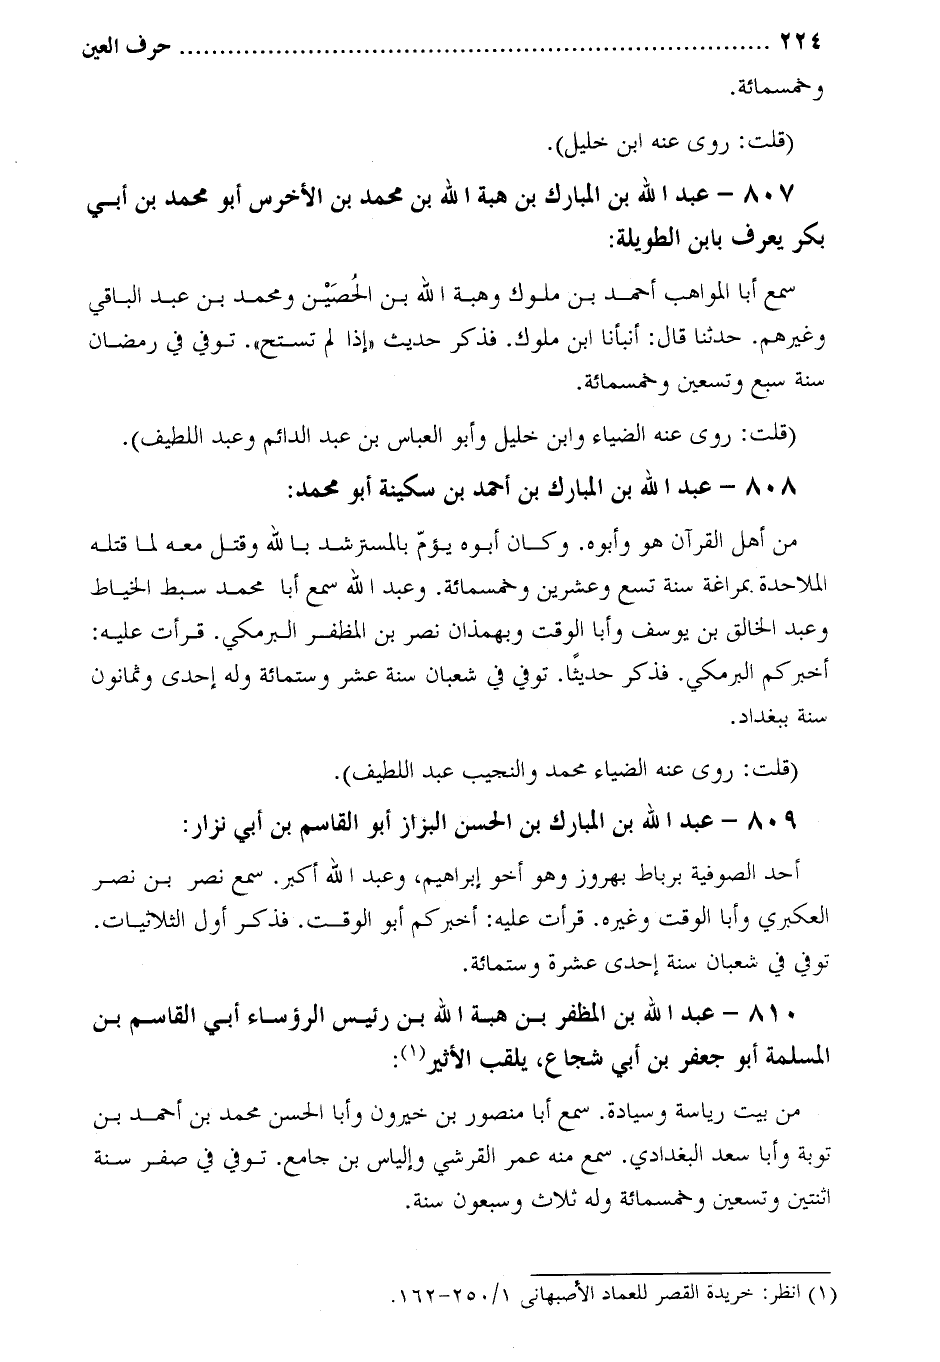 ٢٢٤ ........................................................................ حرف العين
وخمسمائة.
(قلت: روى عنه ابن خليل).
٨٠٧ – عبد الله بن المبارك بن هبة الله بن محمد بن الأخرس أبو محمد بن أبي
بكر يعرف بابن الطويلة:
سمع أبا المواهب أحمد بن ملوك وهبة الله بن الحُصَيْن ومحمد بن عبد الباقي
وغيرهم. حدثنا قال: أنبأنا ابن ملوك. فذكر حديث «إذا لم تستح». توفي في رمضان
سنة سبع وتسعين وخمسمائة.
(قلت: روى عنه الضياء وابن خليل وأبو العباس بن عبد الدائم وعبد اللطيف).
٨٠٨ – عبد الله بن المبارك بن أحمد بن سكينة أبو محمد:
من أهل القرآن هو وأبوه. وكان أبوه يؤمّ بالمسترشد بالله وقتل معه لما قتله
الملاحدة بمراغة سنة تسع وعشرين وخمسمائة. وعبد الله سمع أبا محمد سبط الخياط
وعبد الخالق بن يوسف وأبا الوقت وبهمذان نصر بن المظفر البرمكي. قرأت عليه:
أخبركم البرمكي. فذكر حديثًا. توفي في شعبان سنة عشر وستمائة وله إحدى وثمانون
سنة ببغداد.
(قلت: روى عنه الضياء محمد والنجيب عبد اللطيف).
٨٠٩ – عبد الله بن المبارك بن الحسن البزاز أبو القاسم بن أبي نزار:
أحد الصوفية برباط بهروز وهو أخو إبراهيم، وعبد الله أكبر. سمع نصر بن نصر
العكبري وأبا الوقت وغيره. قرأت عليه: أخبركم أبو الوقت. فذكر أول الثلاثيات.
توفي في شعبان سنة إحدى عشرة وستمائة.
٨١٠ – عبد الله بن المظفر بن هبة الله بن رئيس الرؤساء أبي القاسم بن
المسلمة أبو جعفر بن أبي شجاع، يلقب الأثير(١):
من بيت رياسة وسيادة. سمع أبا منصور بن خيرون وأبا الحسن محمد بن أحمد بن
توبة وأبا سعد البغدادي. سمع منه عمر القرشي وإلياس بن جامع. توفي في صفر سنة
اثنتين وتسعين وخمسمائة وله ثلاث وسبعون سنة.
(١) انظر: خريدة القصر للعماد الأصبهانى ١/ ٢٥٠-١٦٢.